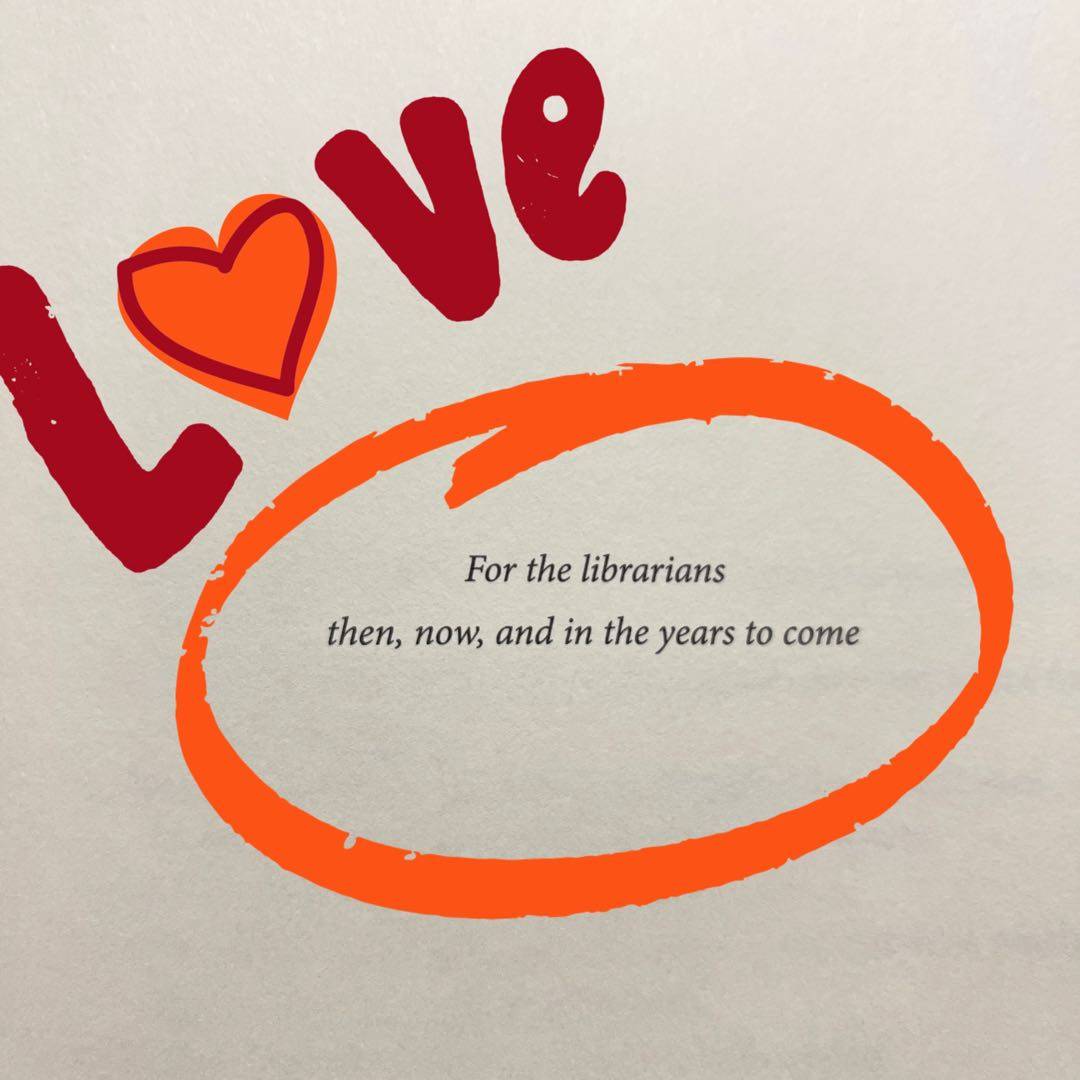 Love
For the librarians
then, now, and in the years to come